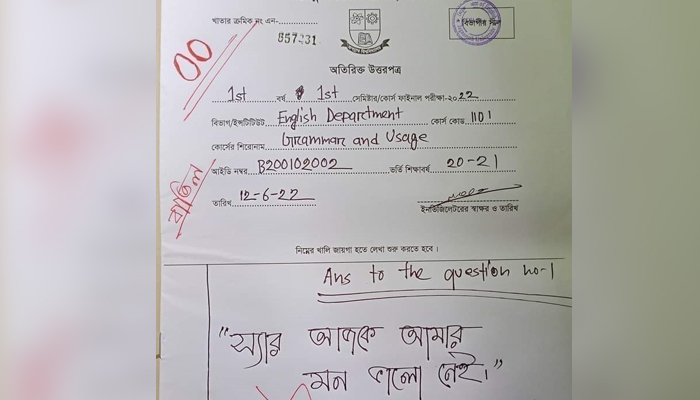 খাতার ক্রমিক নং এন-..............
857231
00
বিভাগীয় সিল
অতিরিক্ত উত্তরপত্র
1st বর্ষ 1st সেমিষ্টার/কোর্স ফাইনাল পরীক্ষা-২০22
বিভাগ/ইন্সটিটিউট English Department কোর্স কোড 1101
কোর্সের শিরোনাম Grammar and Usage
আইডি নম্বর B200102002 ভর্তি শিক্ষাবর্ষ 20-21
বাতিল
তারিখ 12-6-22
ইনভিজিলেটরের স্বাক্ষর ও তারিখ
নিম্নের খালি জায়গা হতে লেখা শুরু করতে হবে।
Ans to the question no-1
"স্যার আজকে আমার
মন ভালো নেই।"